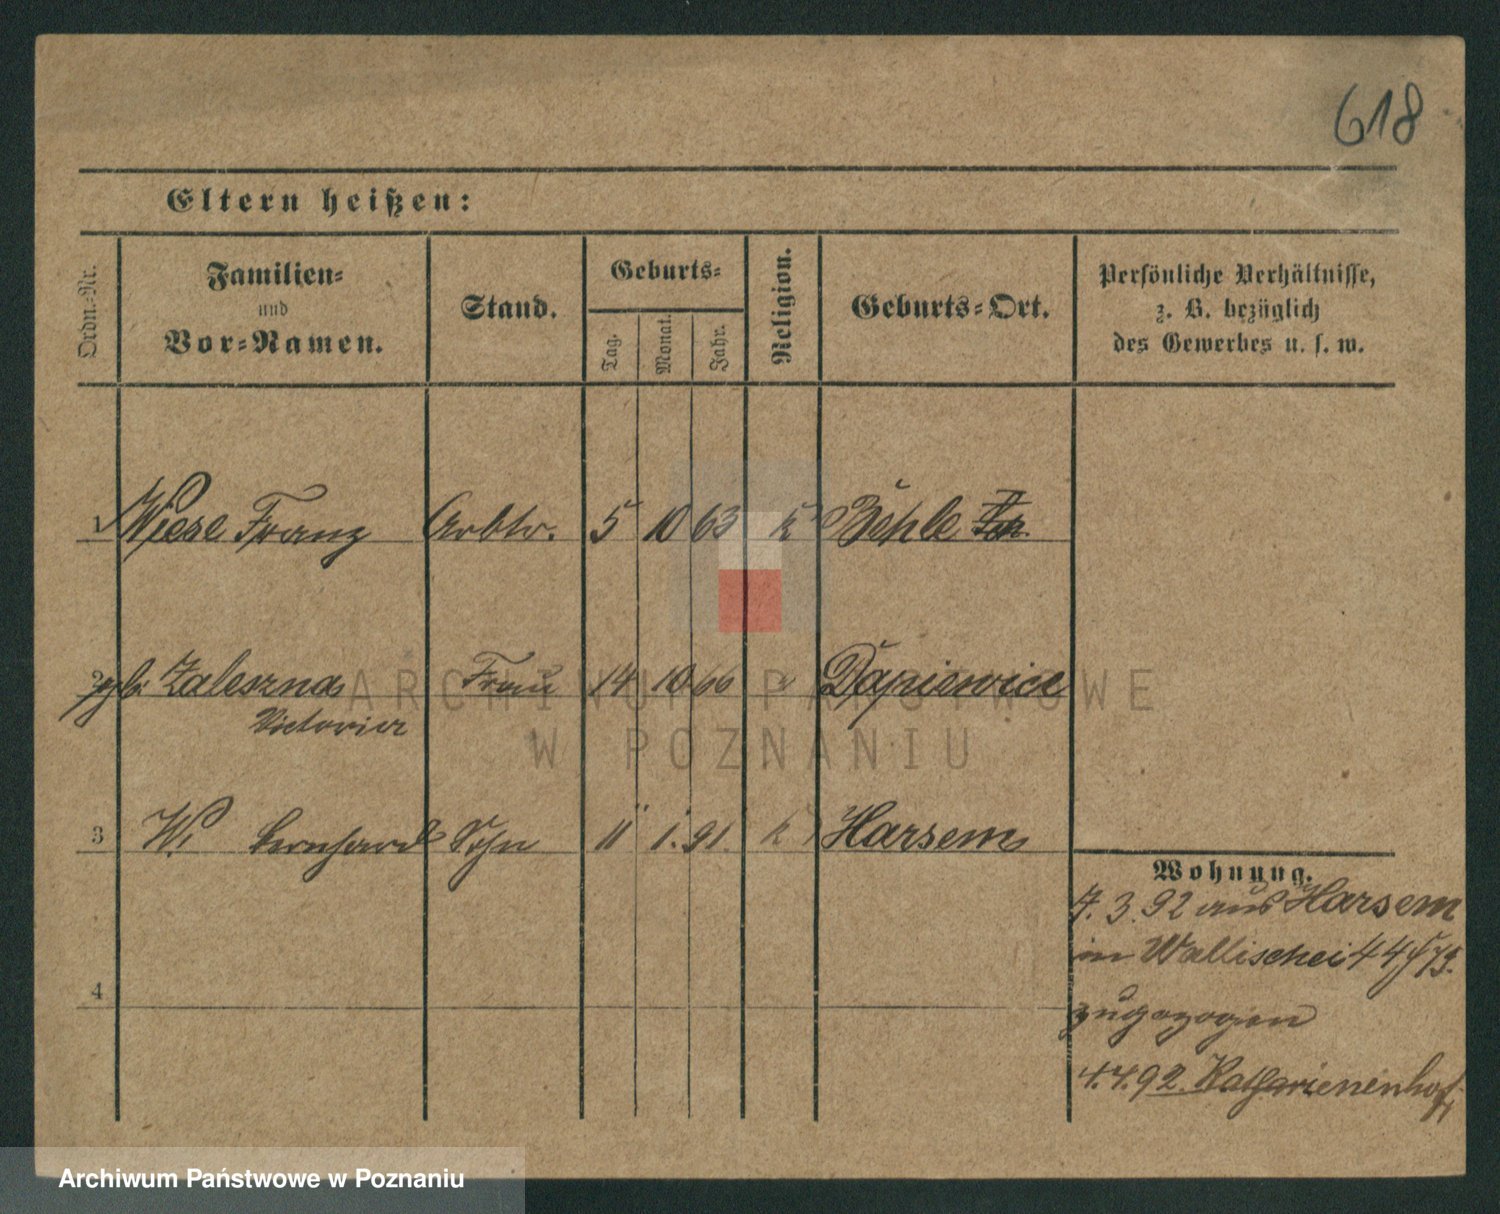 618
Eltern heißen:
Ordn.-Nr.
Familien-
und
Vor-Namen.
Stand.
Geburts-
Tag.
Monat.
Jahr.
Religion.
Geburts-Ort.
Persönliche Verhältnisse,
z. B. bezüglich
des Gewerbes u. s. w.
1 Wiese Franz Arbtr. 5 10 63 k Behle
2 gb. Zaleszna Frau 14 10 66 " Dapiewice
Victoria
3 W. Bernhard Sohn 11 1. 91. k Harsem
4
Wohnung.
7. 3. 92 aus Harsem
in Wallischei 44
zugezogen
4.4.92. Katharienenhof
ARCHIWUM PAŃSTWOWE
W POZNANIU
Archiwum Państwowe w Poznaniu